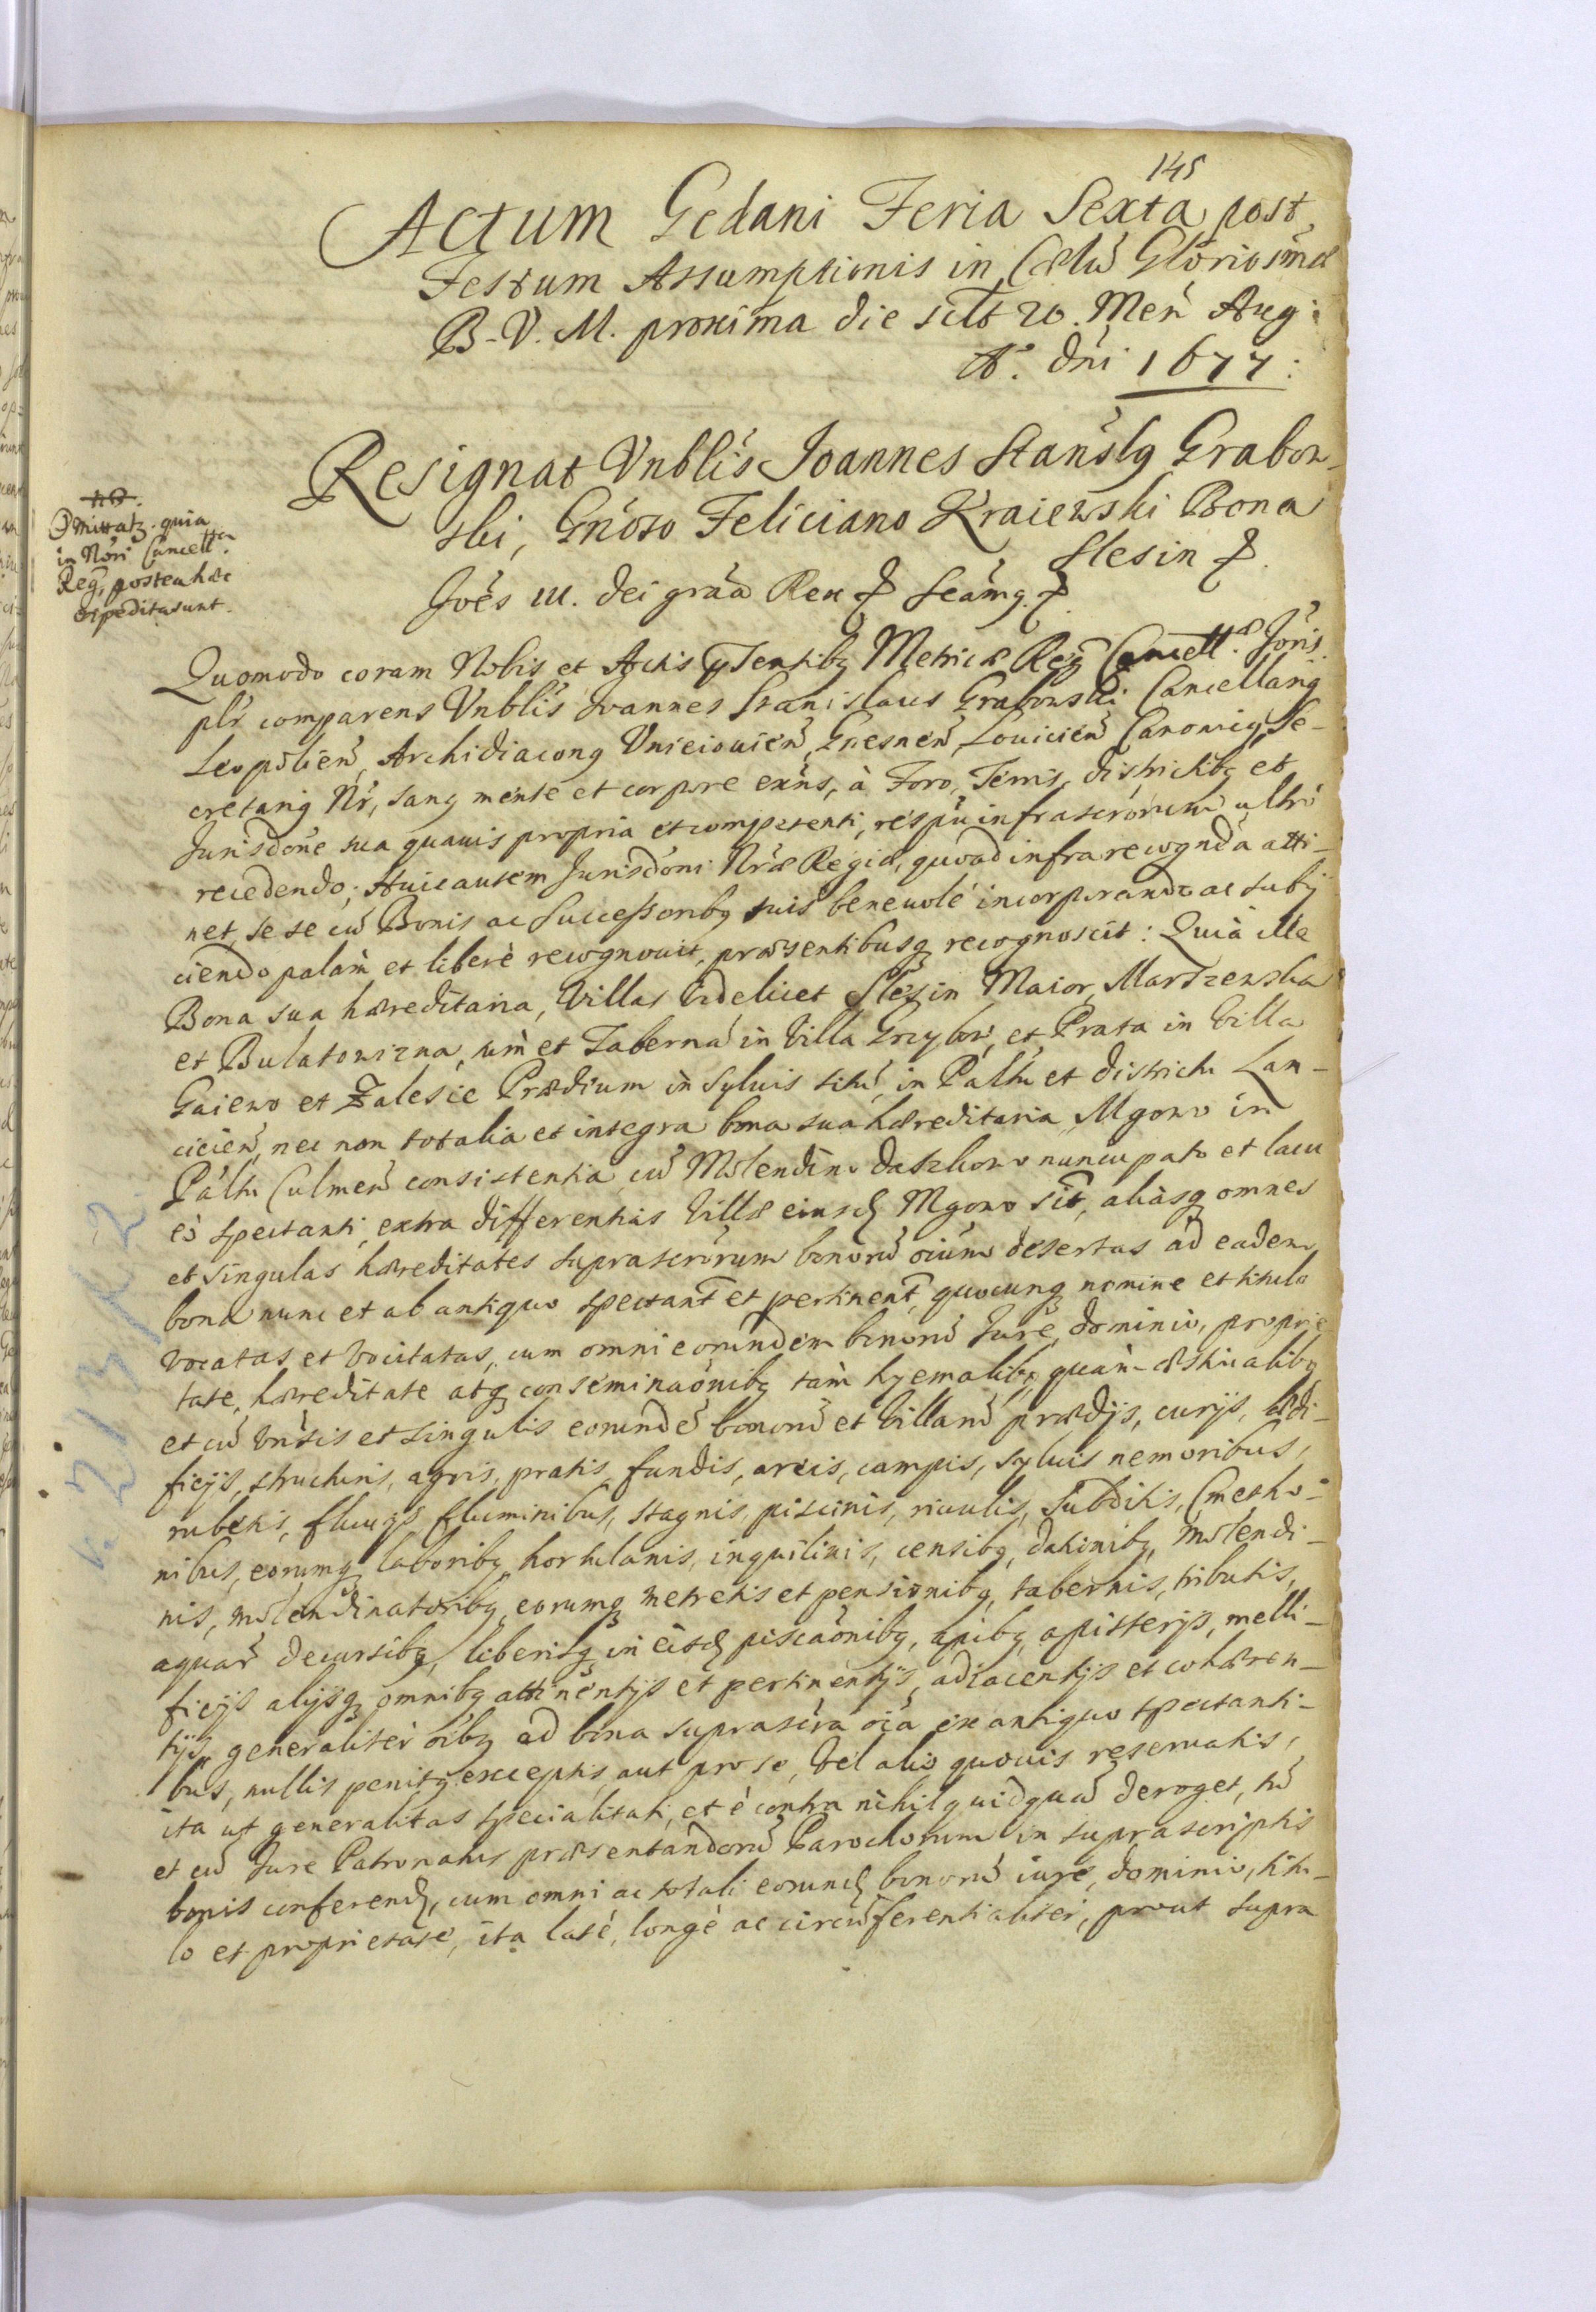 145
Actum Gedani Feria Sexta post
Festum Assumptionis in Cœlũ Gloriosmæ
B. V. M. proxima die sclt 20. Men Aug:
Aº. dni 1677:
Resignat Vnblis Joannes Stanslg Grabow-
ski, Gnoso Feliciano Kraiewski Bona
Slesin &.
NB.
Omittatz. quia
in Nôri Cancell
Reg. postea hæc
expedita sunt.
Joés III. Dei grãa Rex & Seãmg. &.
Quomodo coram Nobis et Actis pñtentibg Metricæ Reg Cancellæ. Joris
plr comparens Vnblis Joannes Stanislaus Grabowski Cancellarig
Leopolien, Archidiacong Vnieiovien, Gnesnen, Lovicien Canonicg, Se-
cretarig Nr, sang mente et corpore exns, à Foro, Terris, districtibg et
Jurisdone sua quavis propria et competenti, respũ infrascrorum ultro
recedendo; Huic autem Jurisdoni Nræ Regiæ, quoad infra recognda atti-
net, se se cũ Bonis ac Successoribg suis benevolé incorporando ac subij
ciendo palàm et liberè recognovit, præsentibusq recognoscit: Quià ille
Bona sua hæreditaria, Villas videlicet Slezin Maior, Marszewska
et Bulatowizna, cum et Taberná in Villa Grzybow, et Prata in Villa
Gaiewo et Zalesie Prædium in Sylvis sitũ in Paltu et districtu Lan-
cicien, nec non totalia et integra bona sua hæreditaria Mgowo in
Paltu Culmen consistentia cũ Molendino Daszkowo nuncupato et lacu
eò spectanti, extra differentias Villæ eiusd Mgowo sit, aliàsq omnes
et singulas hæreditates suprascrorum bonorũ oium desertas ad eadem
bona nunc et ab antiquo spectant et pertinent, quocunq nomine et titulo
vocatas et vocitatas, cum omni eorundem bonorũ Jure, dominio, proprie
tate, hæreditate atq conseminaonibg tàm hyemalibg quàm æstivalibg
et cũ vnsis et singulis eorundẽ bonorũ et Villarũ prædijs, curijs, ædi-
ficijs, structuris, agris, pratis, fundis, areis, campis, sylvis nemoribus,
rubetis, fluvijs fluminibus, stagnis, piscinis, rivulis, Subditis, Cmetho-
nibus, eorumq laboribg, hortulanis, inquilinis, censibg, dationibg, Molendi-
nis, molendinatoribg, eorumq metretis et pensionibg, tabernis, tributis,
aquar decursibg, liberisq in eisd piscaonibg, apibg, apisterijs, melli-
ficijs alijsq omnibg attinentijs et pertinentijs, adiacentijs et cohæren-
tijs, generaliter oibg ad bona suprascra oia ex antiquo spectanti-
bus, nullis penitg exceptis, aut pro se, vel alio quovis reservatis,
ita ut generalitas specialitati, et è contra nihil quidquã deroget, tũ
et cũ Jure Patronatus præsentandorũ Parochorum in suprascriptis
bonis conferend, cum omni ac totali eorund bonorũ iure, dominio, titu-
lo et proprietate, ita latè, longè ac circũferentialiter, prout supra